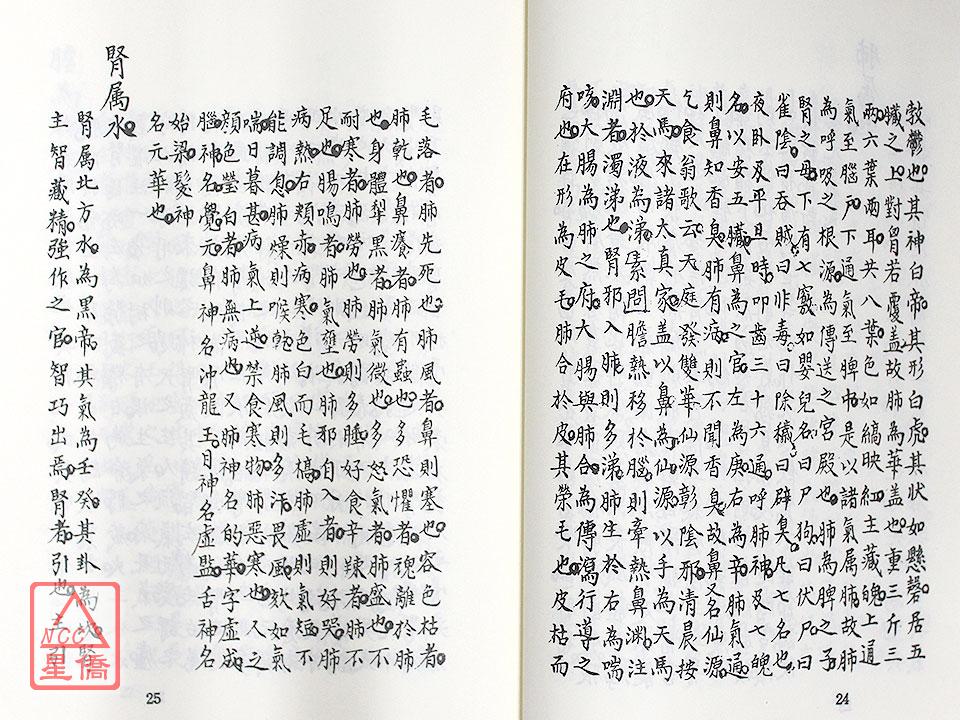 敦鬱也其神白帝其形白虎其状如懸磬居五
臟之上對胷若覆盖故肺為華盖也重三斤三
兩六葉兩耳共八葉色如縞映紅主藏魄上通
氣至腦户下通氣至脾中是以諸氣属肺故肺
為呼吸之根源為傳送之宮殿也肺為脾之子
腎之母下有七竅如嬰兒名曰尸狗曰伏尸曰
雀陰曰吞賊曰非毒曰除穢曰辟臭凡七名也
夜卧及平旦時叩齒三十六通呼肺神及七魄
名以安五臟鼻為之官左為庚右為辛肺氣通
則鼻知香臭肺有病則不聞香臭故鼻又名仙源
乞食翁歌云天庭發雙華仙源彰陰邪清晨按
天馬來諸太真家盖以鼻為仙源以手為天馬
也於液為涕素問膽熱移於腦則辛熱鼻渊注
淵者濁涕也腎邪入肺則多涕肺生於右為喘
咳大腸為肺之府大腸與肺合為傳瀉行導之
府也在形為皮毛肺合於皮其榮毛也皮枯而
24
毛落者肺先死也肺風者鼻則塞也容色枯者
肺乾也鼻癢者肺有蟲也多恐懼者魂離於肺
也身體犁黑者肺氣微也多怒氣者肺盛也不
耐寒者肺勞也肺勞則多睡好食辛辣者肺不
足也腸鳴者肺氣壅也肺邪自入者則好哭肺
病熱右頰赤病寒色白而毛槁肺虛則氣短不
能調息肺燥則喉乾肺風則多汗畏風欬如氣
喘日暮甚病氣上逆禁食寒物肺惡寒也人之
顏色瑩白者肺無病也又肺神名的華字虛成
腦神名覺元鼻神名沖龍玉目神名虛監舌神名
始梁髮神
名元華也
腎属水
腎属北方水為黑帝其氣為壬癸其卦為坎腎
主智藏精強作之官智巧出焉腎者引也主引
25
NCC
星僑